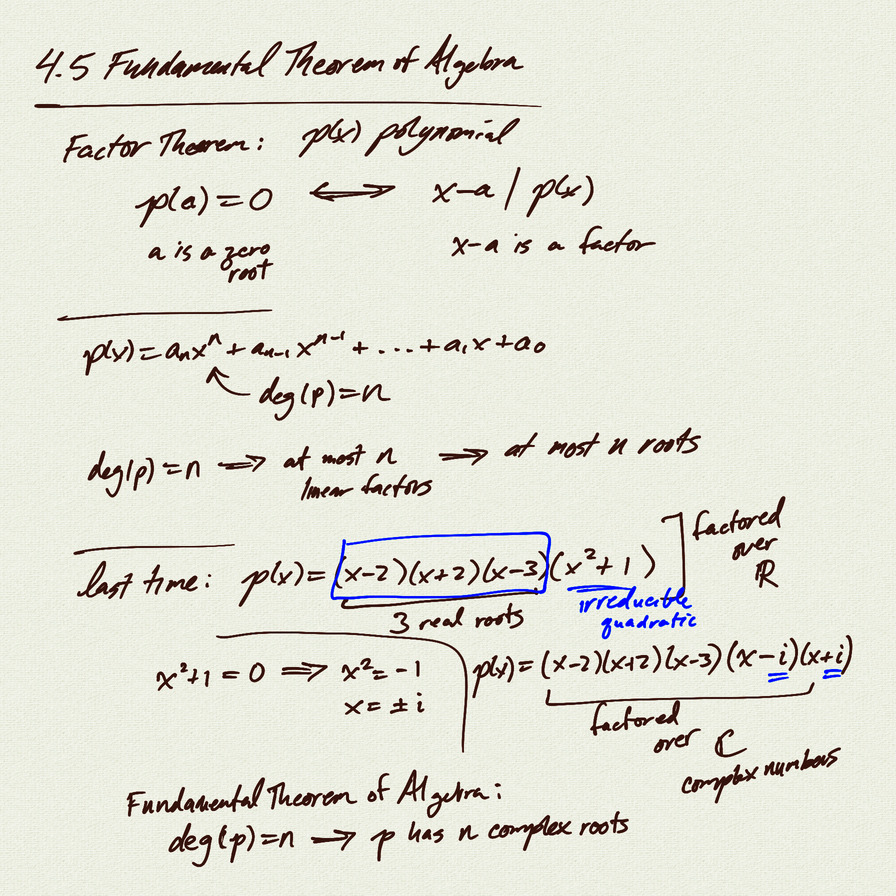 4.5 Fundamental Theorem of Algebra
Factor Theorem: p(x) polynomial
p(a) = 0 ⟺ x-a | p(x)
a is a zero
root
x-a is a factor
p(x) = aₙxⁿ + aₙ₋₁xⁿ⁻¹ + ... + a₁x + a₀
deg(p) = n
deg(p) = n ⟹ at most n ⟹ at most n roots
linear factors
last time: p(x) = (x-2)(x+2)(x-3)(x²+1)
factored
over
ℝ
3 real roots
irreducible
quadratic
x²+1 = 0 ⟹ x² = -1
x = ± i
p(x) = (x-2)(x+2)(x-3)(x-i)(x+i)
factored
over ℂ
complex numbers
Fundamental Theorem of Algebra:
deg(p) = n ⟹ p has n complex roots